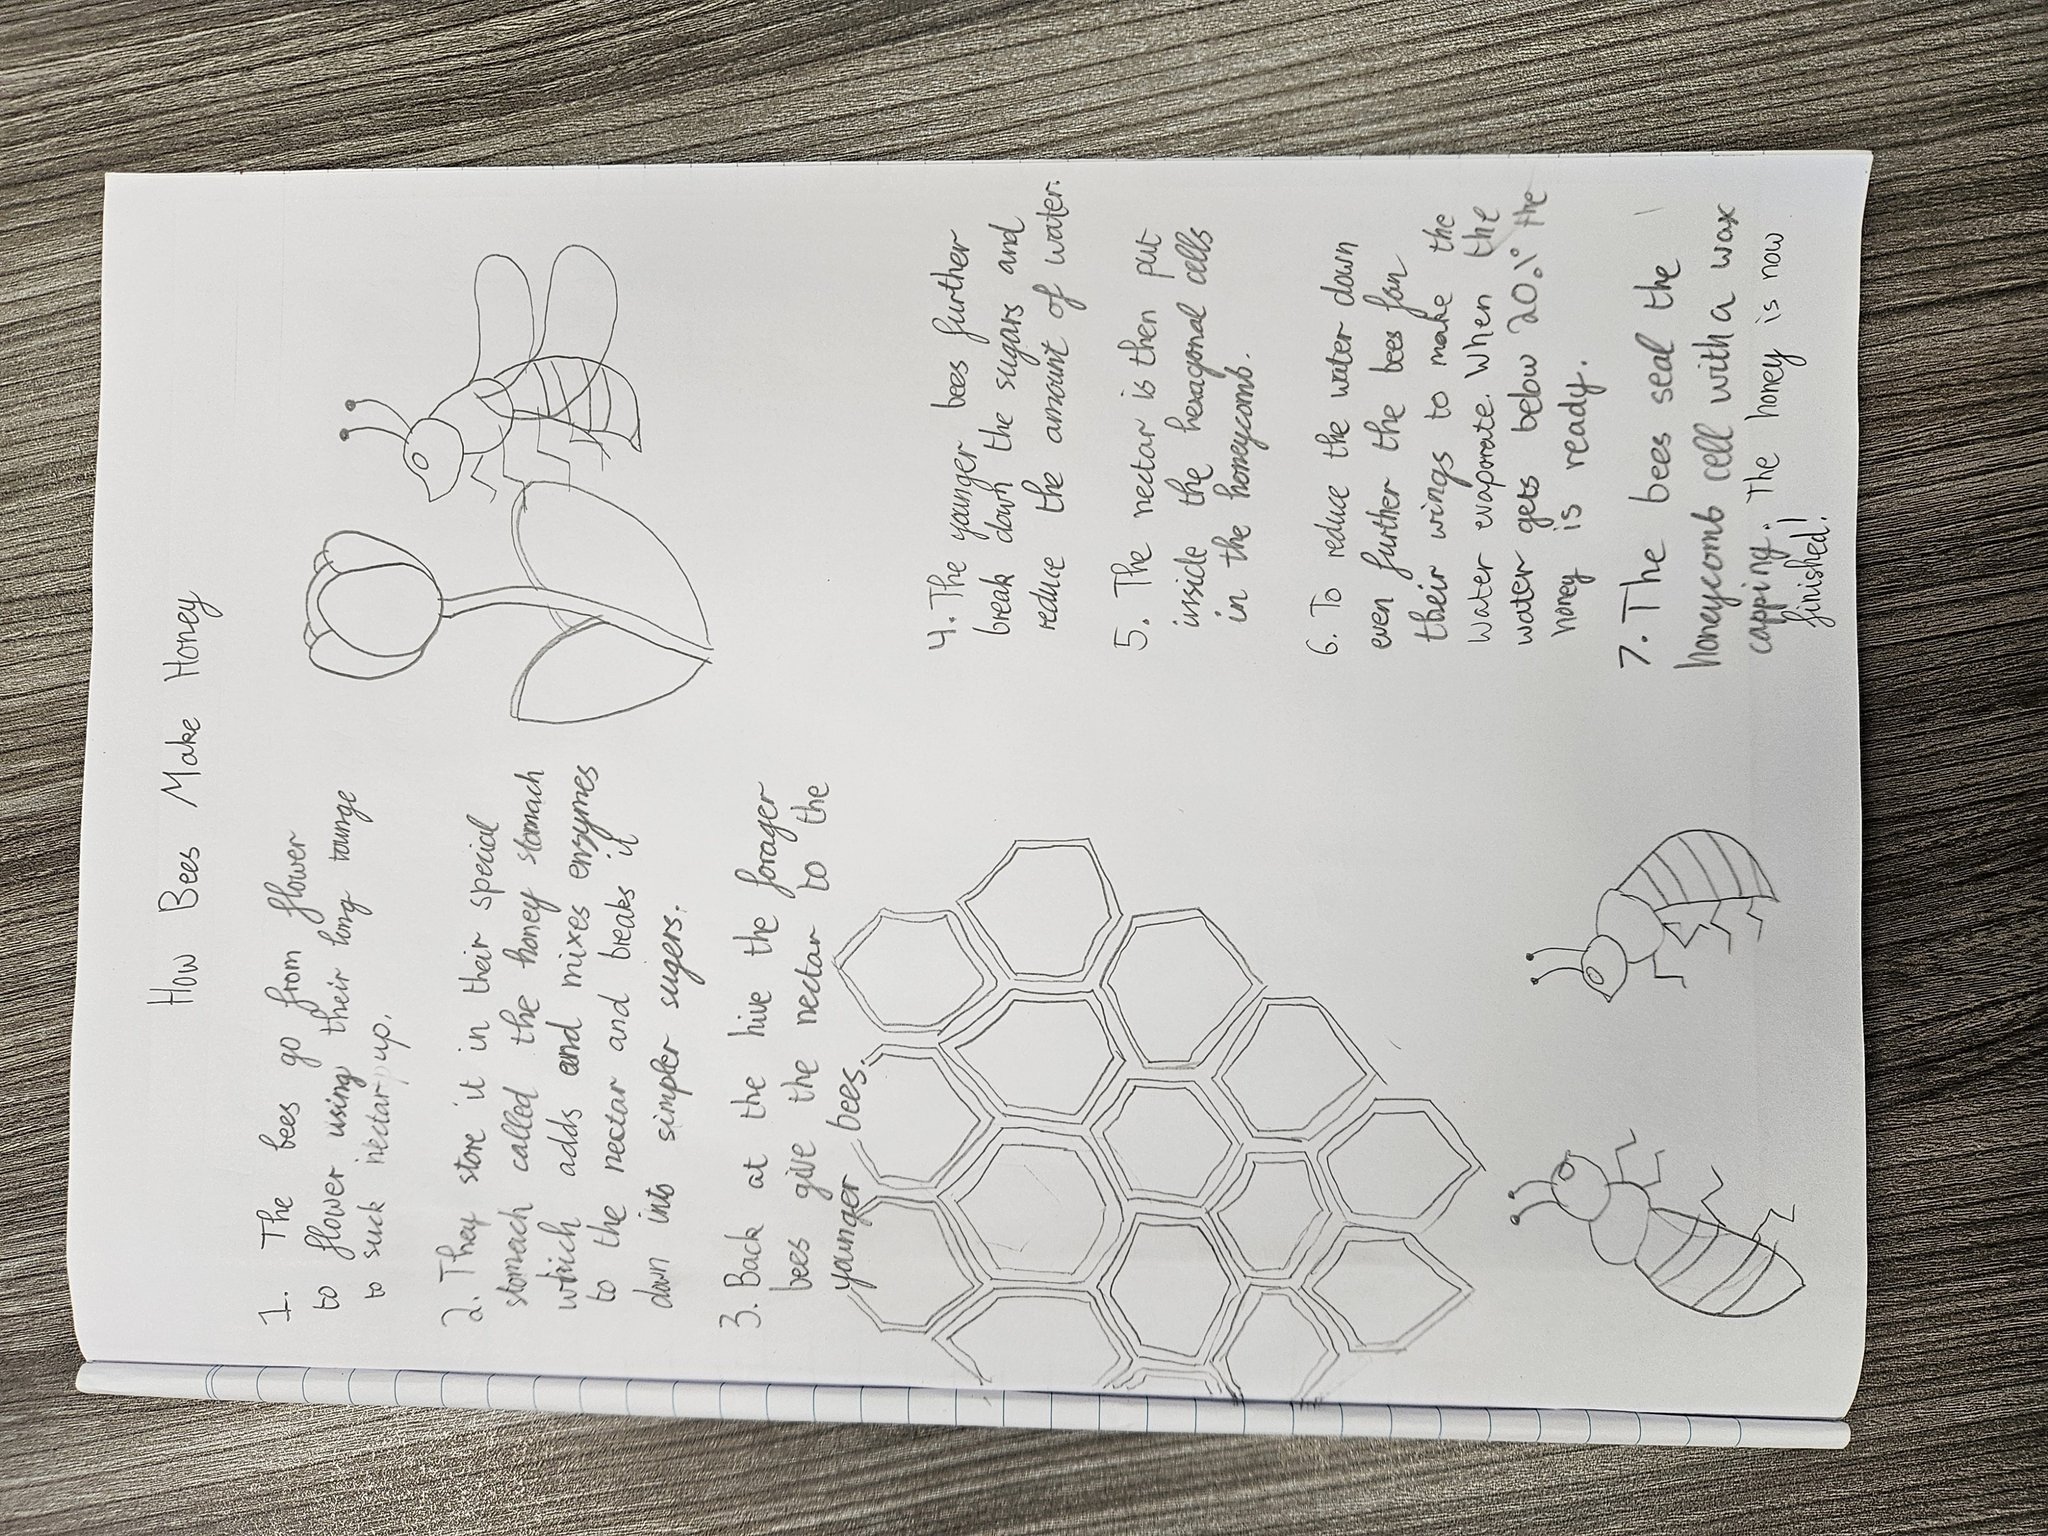 How Bees Make Honey
1. The bees go from flower
to flower using their long tounge
to suck nectar up.
2. They store it in their special
stomach called the honey stomach
which adds and mixes enzymes
to the nectar and breaks it
down into simpler sugers.
3. Back at the hive the forager
bees give the nectar to the
younger bees.
4. The younger bees further
break down the sugars and
reduce the amount of water.
5. The nectar is then put
inside the hexagonal cells
in the honeycomb.
6. To reduce the water down
even further the bees fan
their wings to make the
water evaporate. When the
water gets below 20% the
honey is ready.
7. The bees seal the
honeycomb cell with a wax
capping. The honey is now
finished!